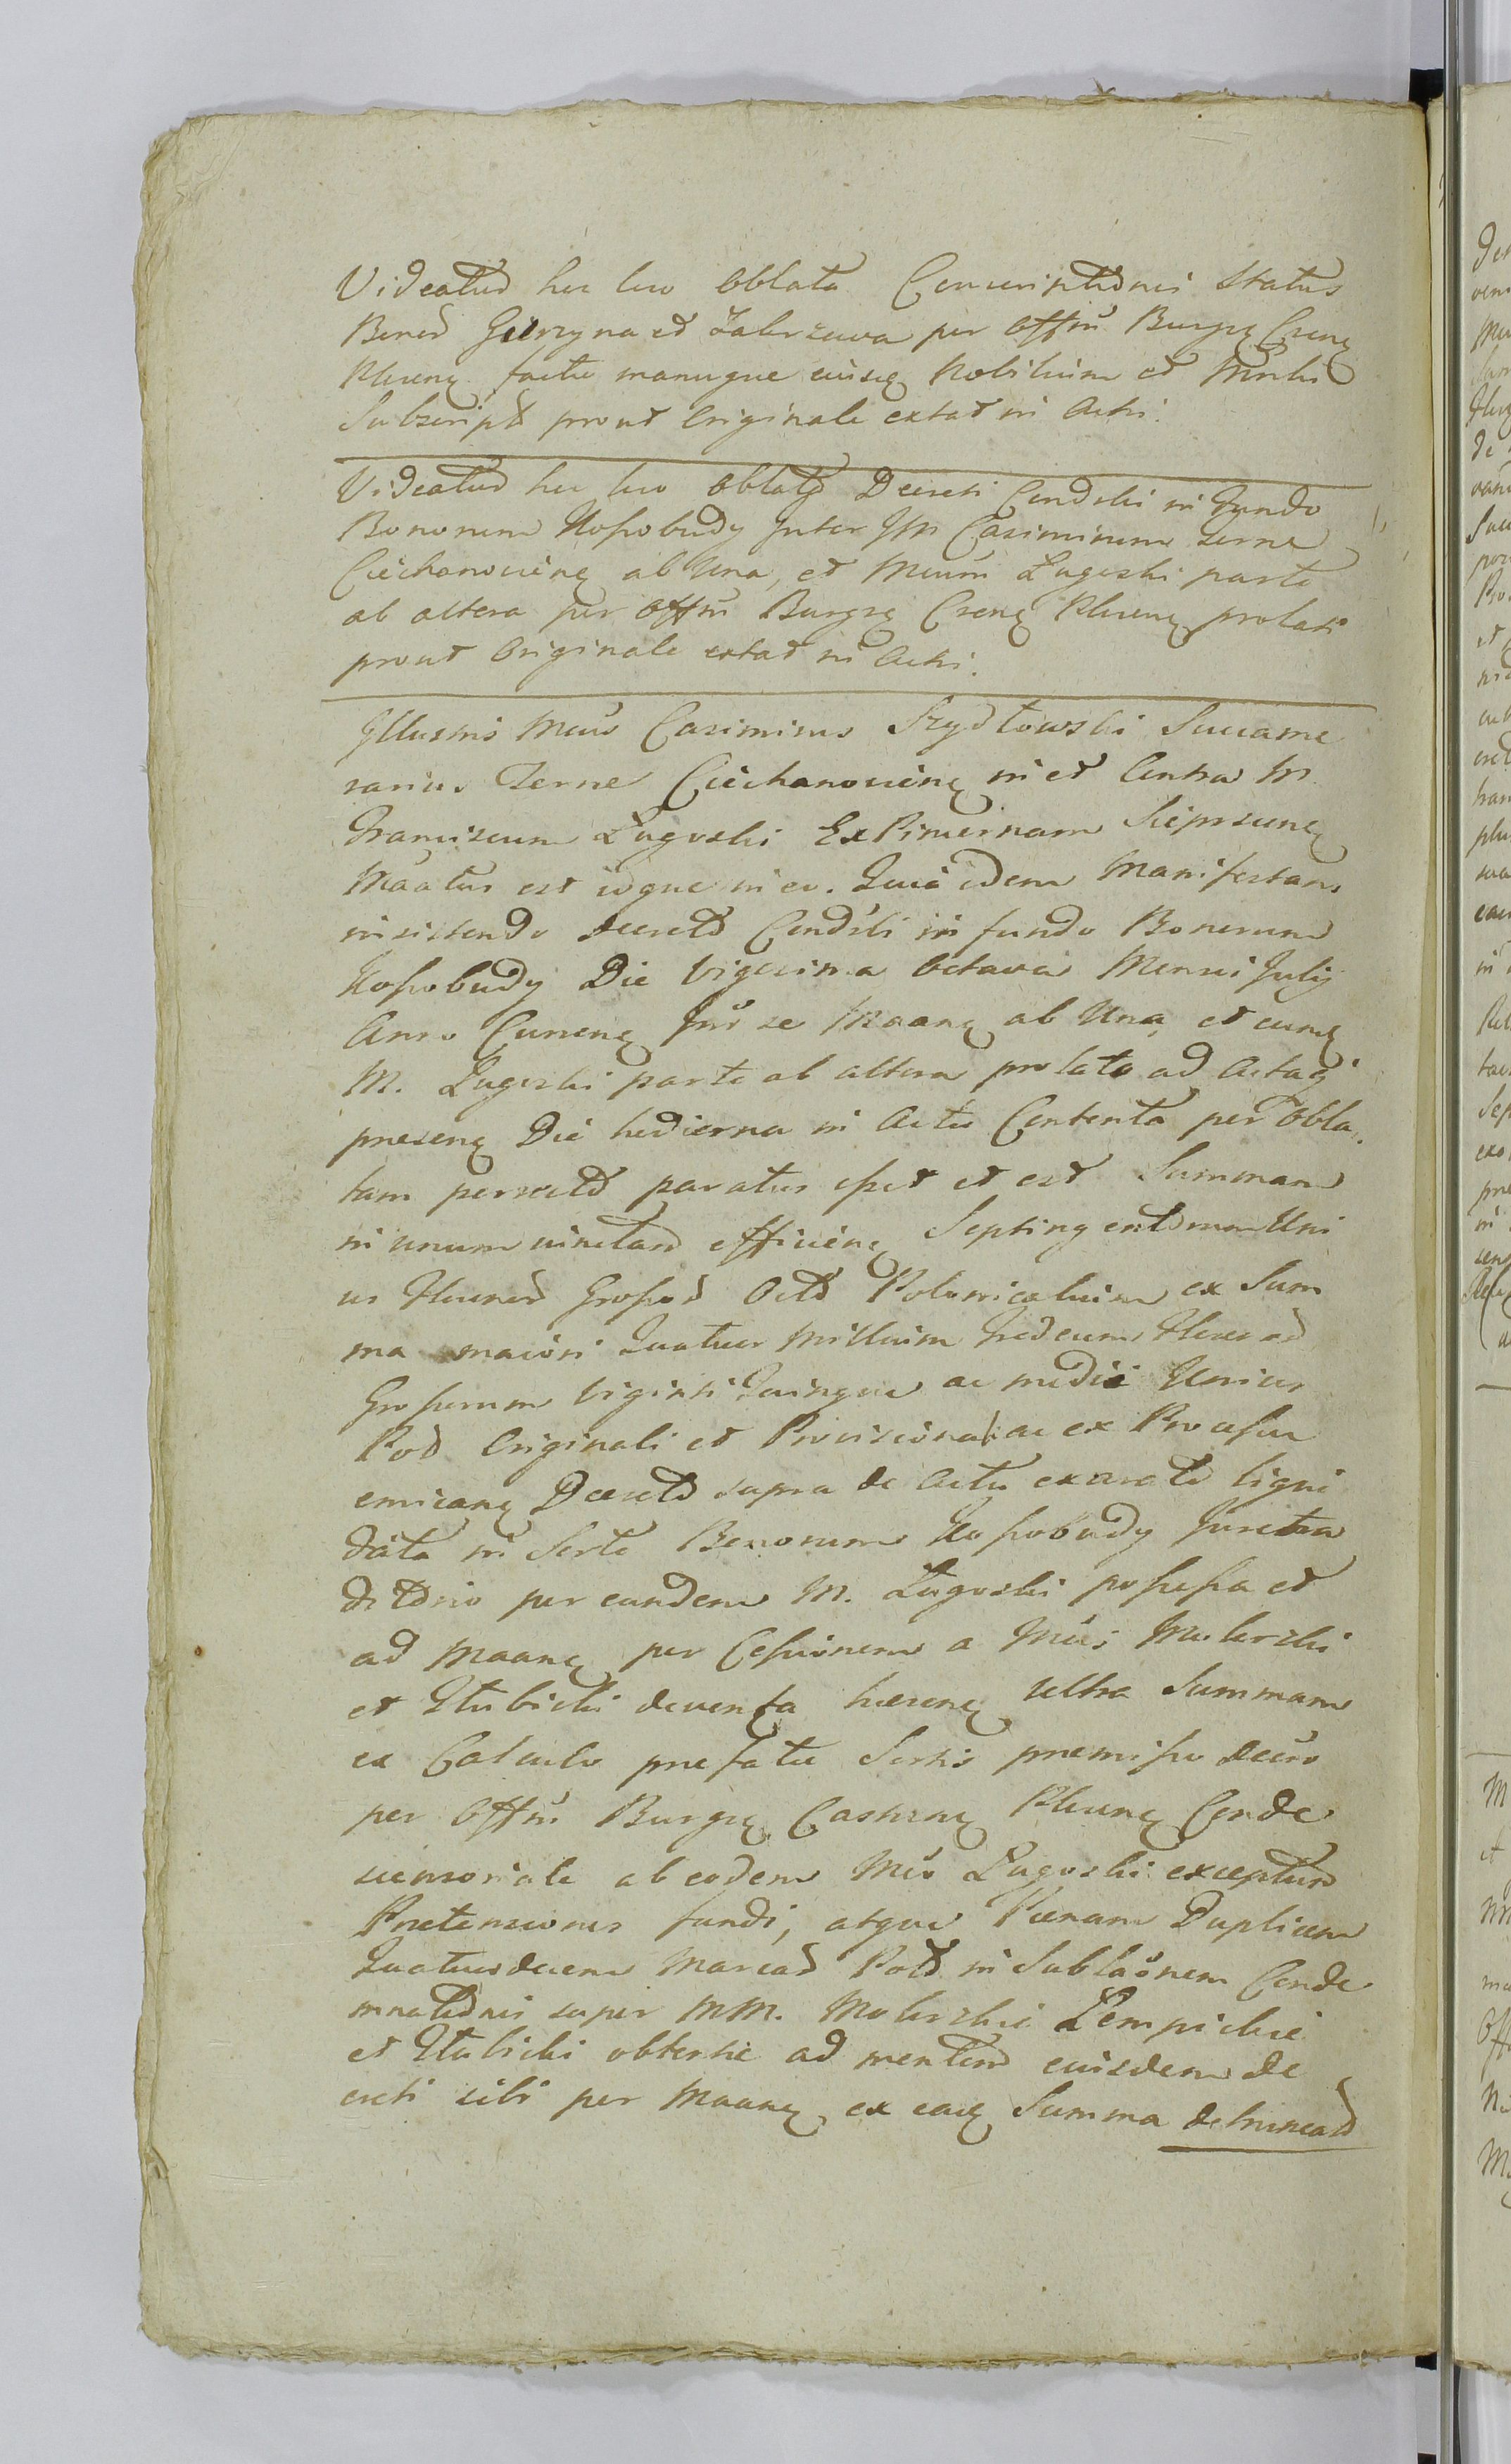 Videatur hic loco Oblata Conscriptionis Status
Bonor Gurzyna et Zaberzewa per Offm Burgrę Csenę
Plucenę facta manuque eiusę Nobilium et
Subscript prout Originale extat in Actis.
Videatur hic loco Oblata Decreti Condcti in Fundo
Bonorum Kossobudy Inter Im Casimirum Terrae
Ciechanovienę ab Una, et Mcum Lugoski parte
ab altera per Offm Burgrę Csenę Plucenę prolati
prout Originale extat in Actis.
Illusmis Mcus Casimirus Szydłowski Succame
rarius Terrae Ciechanovienę in et Contra M.
Franciscum Lugoski ExPincernam Sieprscenę
Maatus est idque in eo. Quia idem Manifestans
insistendo Decreto Condcti in fundo Bonorum
Kossobudy Die Vigesima Octava Mensis Julij
Anno Currenę Intr se Maanę ab Una et eumę
M. Lugoski parte ab altera prolato ad Actaę
presenę Die hodierna in Actis Contenta per Obla
tam porrecto paratus esset et est Summam
in unum iunctam efficienę Septingentorum Uni
us Florenor Grossor Octo Polonicalium ex Sum
ma maiori Quatuor Millium Tredecim Floren
Grossorum Viginti Quinque ac medii Unius
Pol Originali et Provisionali ac ex Processu
emicanę Decreto supra de Actu exarato liqui
data in Sorte Bonorum Kossobudy Juretra
ditorio per eundem M. Lugoski possessa et
ad Maanę per Cessionem a Mcis Mokrski
et Stubicki deventa haerenę ultra Summam
ex Calculo prefatae Sortis premisso Decreto
per Offm Burgrę Castrenę Plucenę Conde
scensoriale ab eodem Mco Lugoski exceptum
Pretensionis fundi, atque Poenam Duplicem
Quatuordecem Marcar Pol in Sublaonem Conde
mnationis super MM. Mokrskie Lempickie
et Stubicki obtentae ad mentem eiusdem De
creti sibi per Maanę ex eaę Summa detruncar